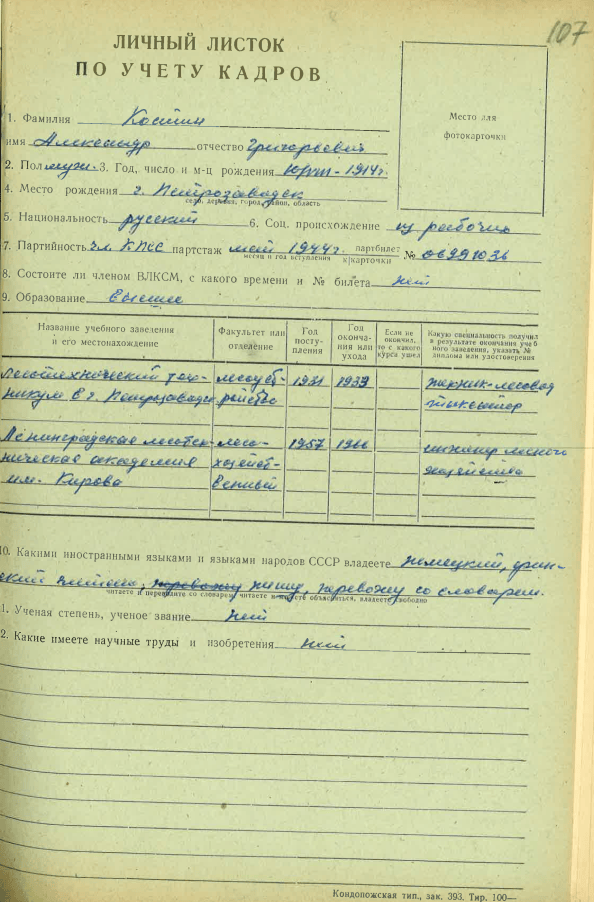 107
ЛИЧНЫЙ ЛИСТОК
ПО УЧЕТУ КАДРОВ
Место для
фотокарточки
1. Фамилия Костин
имя Александр отчество Григорьевич
2. Пол муж. 3. Год, число и м-ц рождения 1914г.
4. Место рождения г. Петрозаводск
село, деревня, город, район, область
5. Национальность русский 6. Соц. происхождение из рабочих
7. Партийность чл. КПСС партстаж май 1944г. партбилет
месяц и год вступления к/карточки № 06991036
8. Состоите ли членом ВЛКСМ, с какого времени и № билета нет
9. Образование высшее
Название учебного заведения и его местонахождение
Факультет или отделение
Год поступления
Год окончания или ухода
Если не окончил, то с какого курса ушел
Какую специальность получил в результате окончания учебного заведения, указать № диплома или удостоверения
Лесотехнический тех- лесоуст- 1931 1933 техник-лесовод
никум в г. Петрозаводск ройство таксатор
Ленинградская лесотех- лесо- 1957 1966 инженер лесного
ническая академия хозяйст- хозяйства
им. Кирова венный
10. Какими иностранными языками и языками народов СССР владеете немецкий, фин-
ский читаю, перевожу пишу, перевожу со словарем.
читаете и переводите со словарем, читаете и можете объясняться, владеете свободно
1. Ученая степень, ученое звание нет
2. Какие имеете научные труды и изобретения нет
Кондопожская тип., зак. 393. Тир. 100—